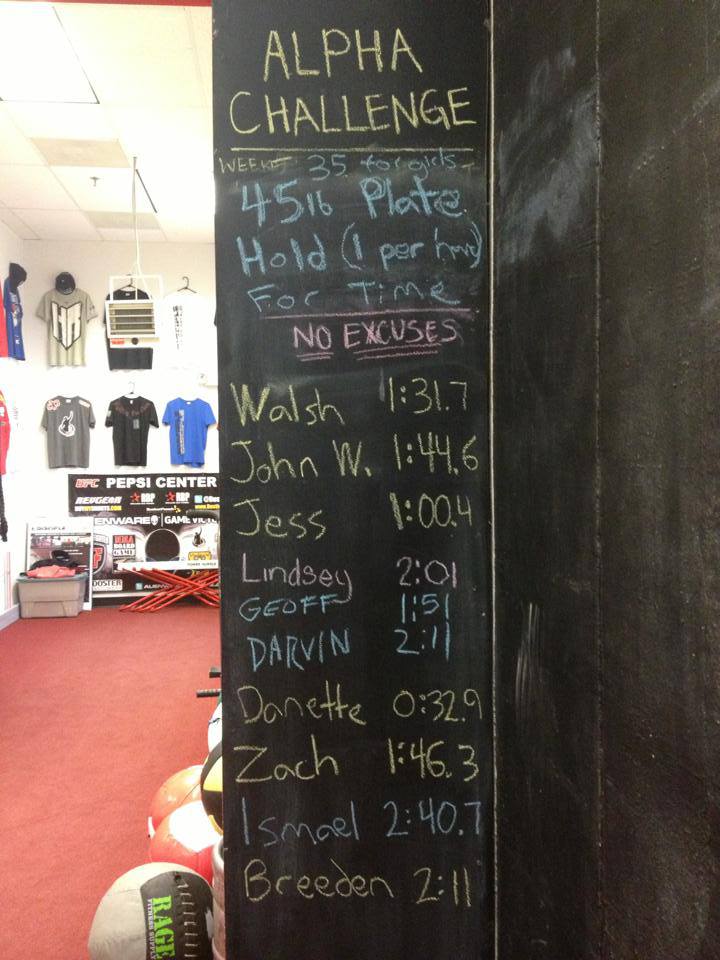 ALPHA
CHALLENGE
35 for girls
45lb Plate
Hold (1 per hand)
For Time
NO EXCUSES
Walsh 1:31.7
John W. 1:44.6
Jess 1:00.4
Lindsey 2:01
GEOFF 1:51
DARVIN 2:11
Danette 0:32.9
Zach 1:46.3
Ismael 2:40.7
Breeden 2:11
UFC PEPSI CENTER
REVGEAR RBP RBP
ENWARE GAME VICT
MMA
BOARD
GAME
RAGE
FITNESS SUPPLY